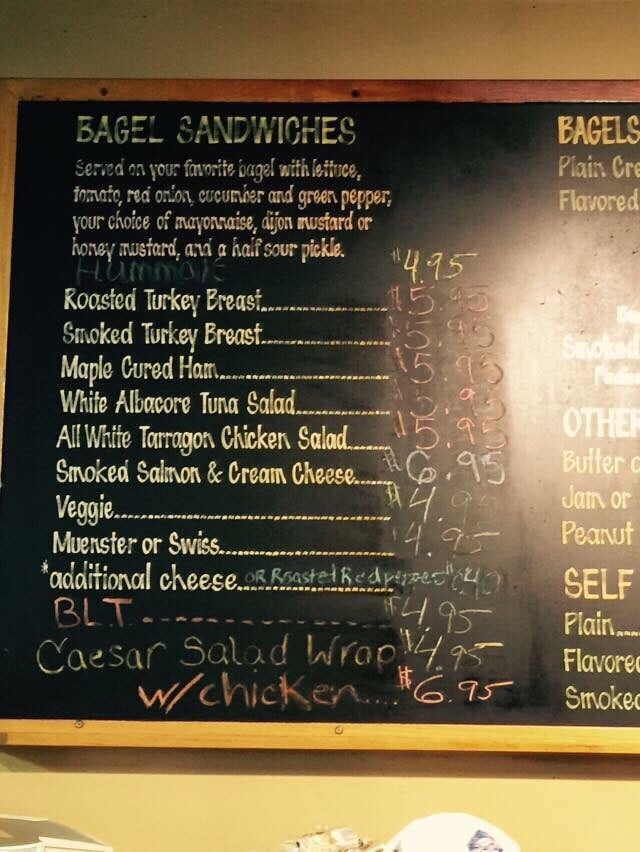 BAGEL SANDWICHES
Served on your favorite bagel with lettuce,
tomato, red onion, cucumber and green pepper,
your choice of mayonnaise, dijon mustard or
honey mustard, and a half sour pickle.
$4.95
Roasted Turkey Breast $5.95
Smoked Turkey Breast $5.95
Maple Cured Ham $5.95
White Albacore Tuna Salad 5.95
All White Tarragon Chicken Salad $5.95
Smoked Salmon & Cream Cheese $6.95
Veggie $4.95
Muenster or Swiss 4.95
*additional cheese OR Roasted Red
BLT $4.95
Caesar Salad Wrap $4.95
w/chicken.... $6.95
BAGELS
Plain Cre
Flavored
Smoked
OTHER
Butter
Jam or
Peanut
SELF
Plain
Flavored
Smoked